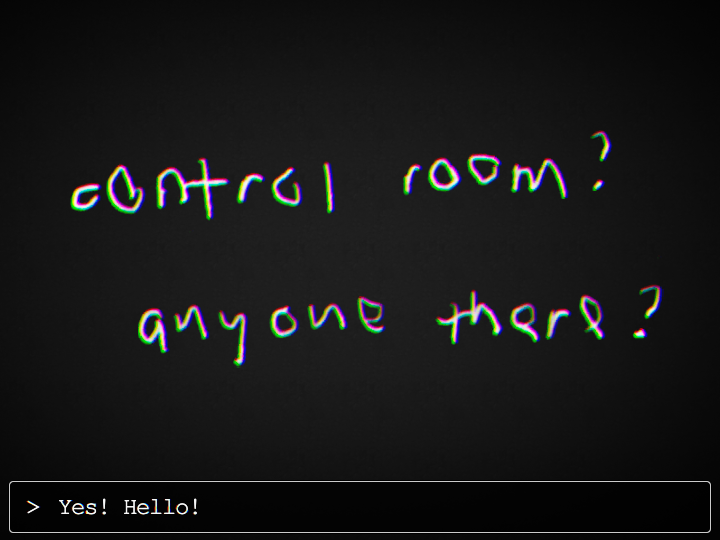 control room?
anyone there?
> Yes! Hello!